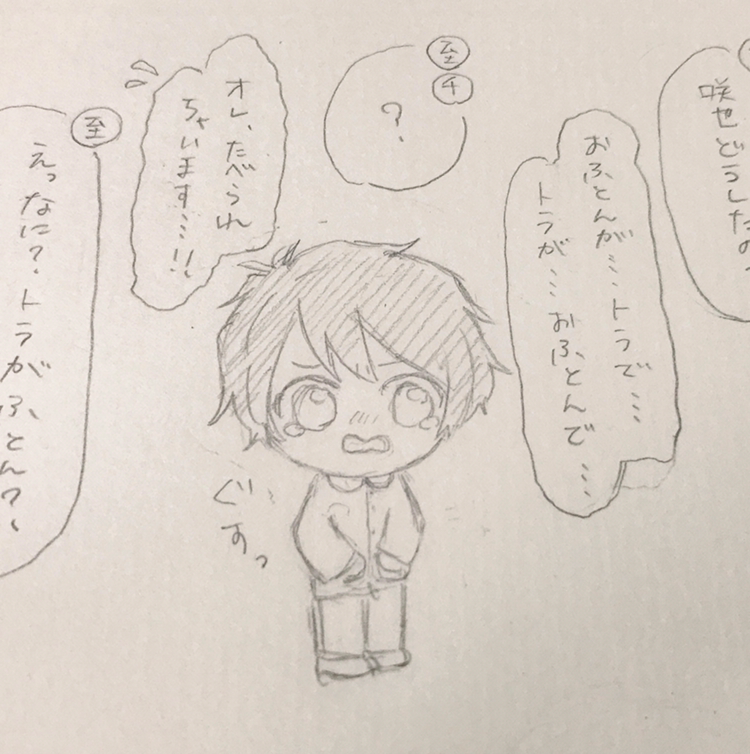 咲也どうしたの
おふとんが……トラで……
トラが……おふとんで……
至
チ
?
オレ、たべられ
ちゃいます……!!
至
えっなに?、トラがふとん?、
ぐすっ